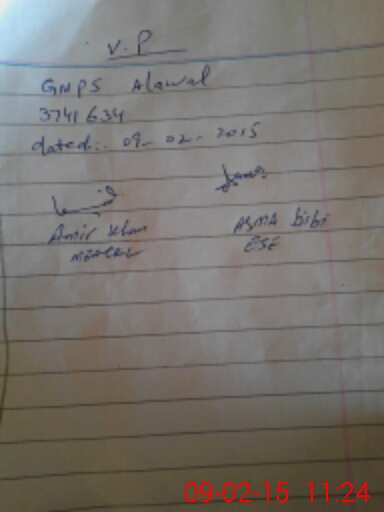 V.P
GMPS Alawal
3741634
dated:. 09-02-2015
Amir Khan
ASMA bibi
ESE
09-02-15 11:24